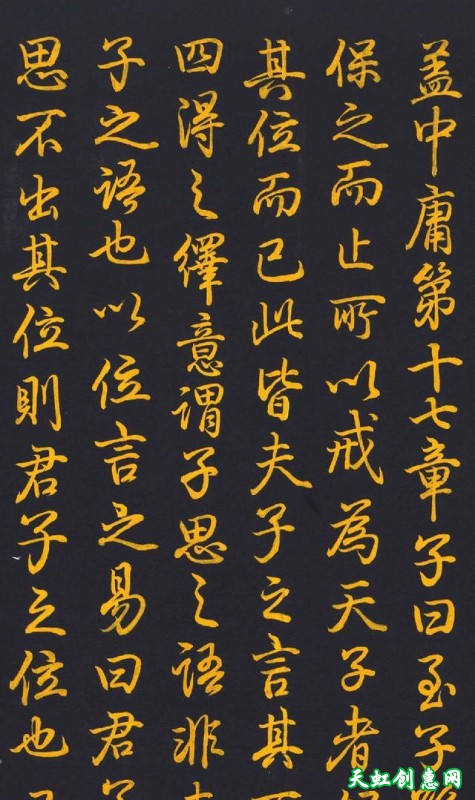 盖中庸第十七章子曰至子
保之而止所以戒為天子者
其位而已此皆夫子之言其
四得之繹意謂子思之語非
子之語也以位言之易曰君子
思不出其位則君子之位也
天虹创惠网